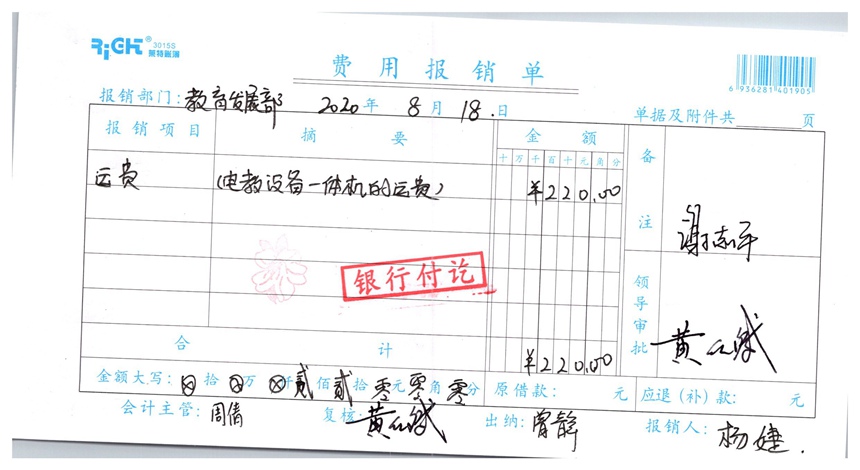 RiGHT® 3015S
莱特账簿
费用报销单
6 936281 401905
报销部门：教育发展部 2020年 8月 18.日 单据及附件共 页
报销项目 摘要 金额 备注
十万千百十元角分
运费 (电教设备一体机的运费) ¥220.00
谢志平
银行付讫
领导审批
合计 ¥220.00
金额大写：⊗拾⊗万⊗仟贰佰贰拾零元零角零分 原借款： 元 应退（补）款： 元
会计主管：周倩 复核： 出纳：曾静 报销人：杨婕.